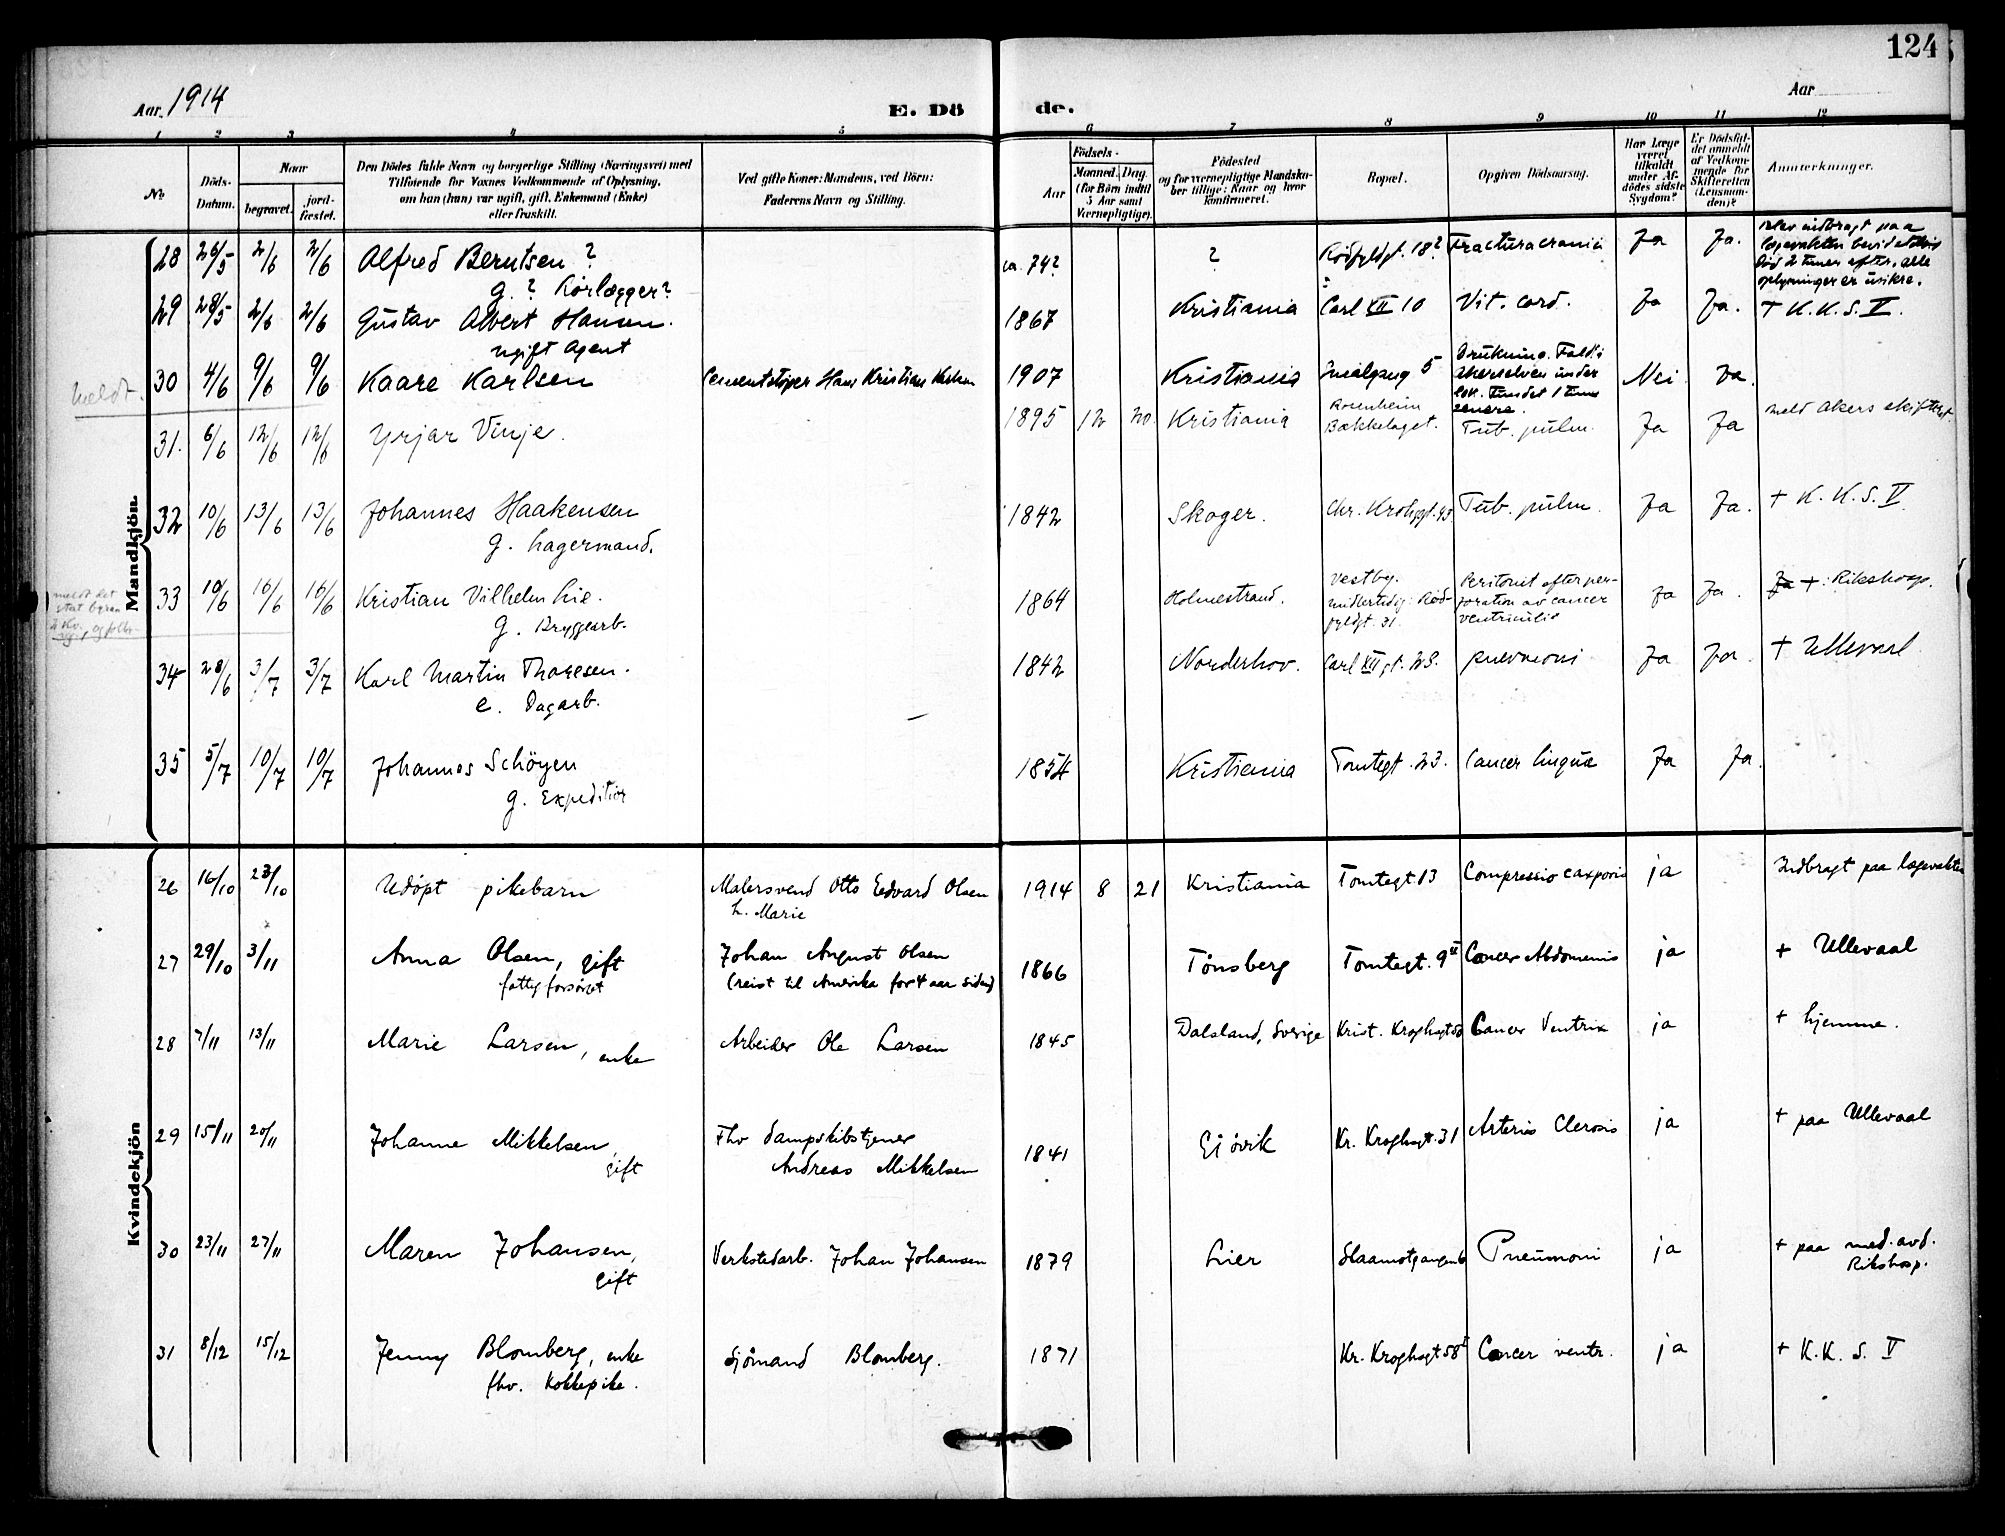 124
Aar 1914
E. Dö
de.
Aar
1 2 3 4 5 6 7 8 9 10 11 12
No
Döds-
Datum.
Naar
begravet.
jord-
fæstet.
Den Dödes fulde Navn og borgerlige Stilling (Næringsvei) med
Tilföiende for Voxnes Vedkommende af Oplysning,
om han (hun) var ugift, gift, Enkemand (Enke)
eller fraskilt.
Ved gifte Koner: Mandens, ved Börn:
Faderens Navn og Stilling.
Födsels-
Aar
Maaned. Dag
(for Börn indtil
5 Aar samt
Værnepligtige).
Födested
og for værnepligtige Mandska-
ber tillige: Naar og hvor
konfirmeret.
Bopæl.
Opgiven Dödsaarsag.
Har Læge
været
tilkaldt
under Af-
dödes sidste
Sygdom?
Er Dödsfal-
det anmeldt
af Vedkom-
mende for
Skifteretten
(Lensman-
den)?
Anmærkninger.
Mandkjön
28 26/5 2/6 2/6 Alfred Berntsen ? ca. 74? ? Rödfyldgt. 18? Fractura cranii Ja Ja. Blev indbragt paa
lægevakten bevidstløs
död 2 timer efter, alle
oplysninger er usikre.
g. ? Rörlægger?
29 28/5 2/6 2/6 Gustav Albert Hansen. 1867 Kristiania Carl XII 10 Vit. cord. Ja Ja. † K. K. S. V.
ugift Agent
meldt.
30 4/6 9/6 9/6 Kaare Karlsen Cementstøper Hans Kristian Karlsen 1907 Kristiania 5 Drukning. Faldt i
Akerselven under
lek. Fundet 1 time
senere.
Nei Ja.
31. 6/6 12/6 12/6 Yrjar Vinje. 1895 12 20. Kristiania Rosenheim
Bækkelaget. Tub. pulm. Ja Ja meld Akers skifteret.
32 10/6 13/6 13/6 Johannes Haakensen 1842 Skoger. Chr. Krohgsgt. 43 Tub. pulm. Ja Ja. † K. K. S. V
g. Lagermand.
meldt det
stat byraa
33 10/6 16/6 16/6 Kristian Vilhelm Lie. 1864 Holmestrand. Vestby.
midlertidig: Rød-
fyldgt. 31. Peritonit efter per-
foration av cancer
ventriculi Ja Ja. Ja †: Rikshosp.
g. Bryggearb.
34 28/6 3/7 3/7 Karl Martin Thoresen. 1842 Norderhov. Carl XII gt. 28. pneumoni Ja Ja. † Ullevaal
e. Dagarb.
35 5/7 10/7 10/7 Johannes Schöyen 1854 Kristiania Tomtegt. 23. Cancer lingua Ja Ja.
g. Expeditør
Kvindekjön
26 16/10 23/10 Udöpt pikebarn Malersvend Otto Eedvard Olsen 1914 8 21 Kristiania Tomtegt. 13 Compressio ja Indbragt paa lægevakten
h. Marie
27 29/10 3/11 Anna Olsen, gift Johan August Olsen 1866 Tönsberg Tomtegt. 9 II Cancer Abdomenis ja + Ullevaal
fattigforsörget (reist til Amerika for 4 aar siden)
28 7/11 13/11 Marie Larsen, enke Arbeider Ole Larsen 1845 Dalsland, Sverige Krist. Kroghsgt 50 Cancer Ventrix ja + hjemme.
29 15/11 20/11 Johanne Mikkelsen, Fhv dampskibstjener 1841 Gjövik Kr. Kroghsgt. 31 Arterio Clerosis ja + paa Ullevaal
gift Andreas Mikkelsen
30 23/11 27/11 Maren Johansen, Verkstedarb. Johan Johansen 1879 Lier Slaamotgangen 6 Pneumoni ja + paa med. avd.
Rikshosp.
gift
31 8/12 15/12 Jenny Blomberg, enke Sjömand Blomberg. 1871 Kr. Kroghsgt 58 I Cancer ventr. ja + K. K. S. V
fhv. Kokkepike.